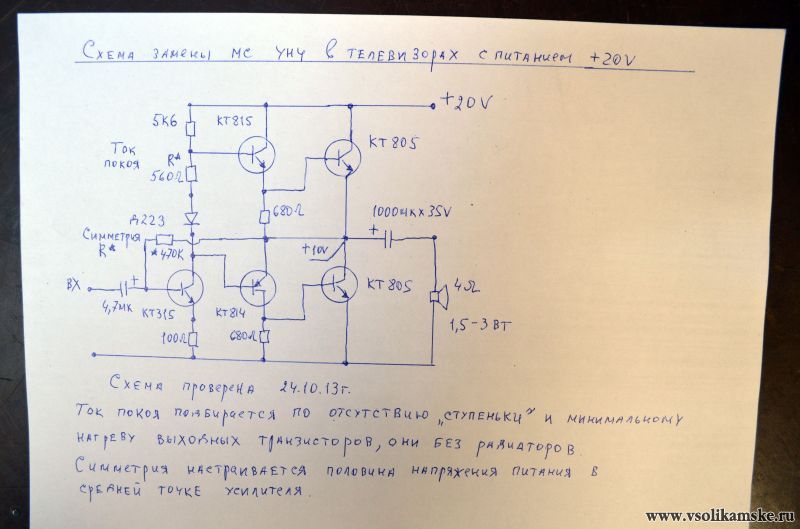 Схема замены мс унч в телевизорах с питанием +20V
+20V
5К6
КТ815
КТ805
Ток
покоя
R*
560Ω
680Ω
1000мк×35V
+
Д223
Симметрия
R*
*470К
+10V
ВХ
+
4,7мк
КТ315
КТ814
КТ805
4Ω
100Ω
680Ω
1,5-3 Вт
Схема проверена 24.10.13г.
Ток покоя подбирается по отсутствию „ступеньки" и минимальному
нагреву выходных транзисторов, они без радиаторов.
Симметрия настраивается половина напряжения питания в
средней точке усилителя.
www.vsolikamske.ru